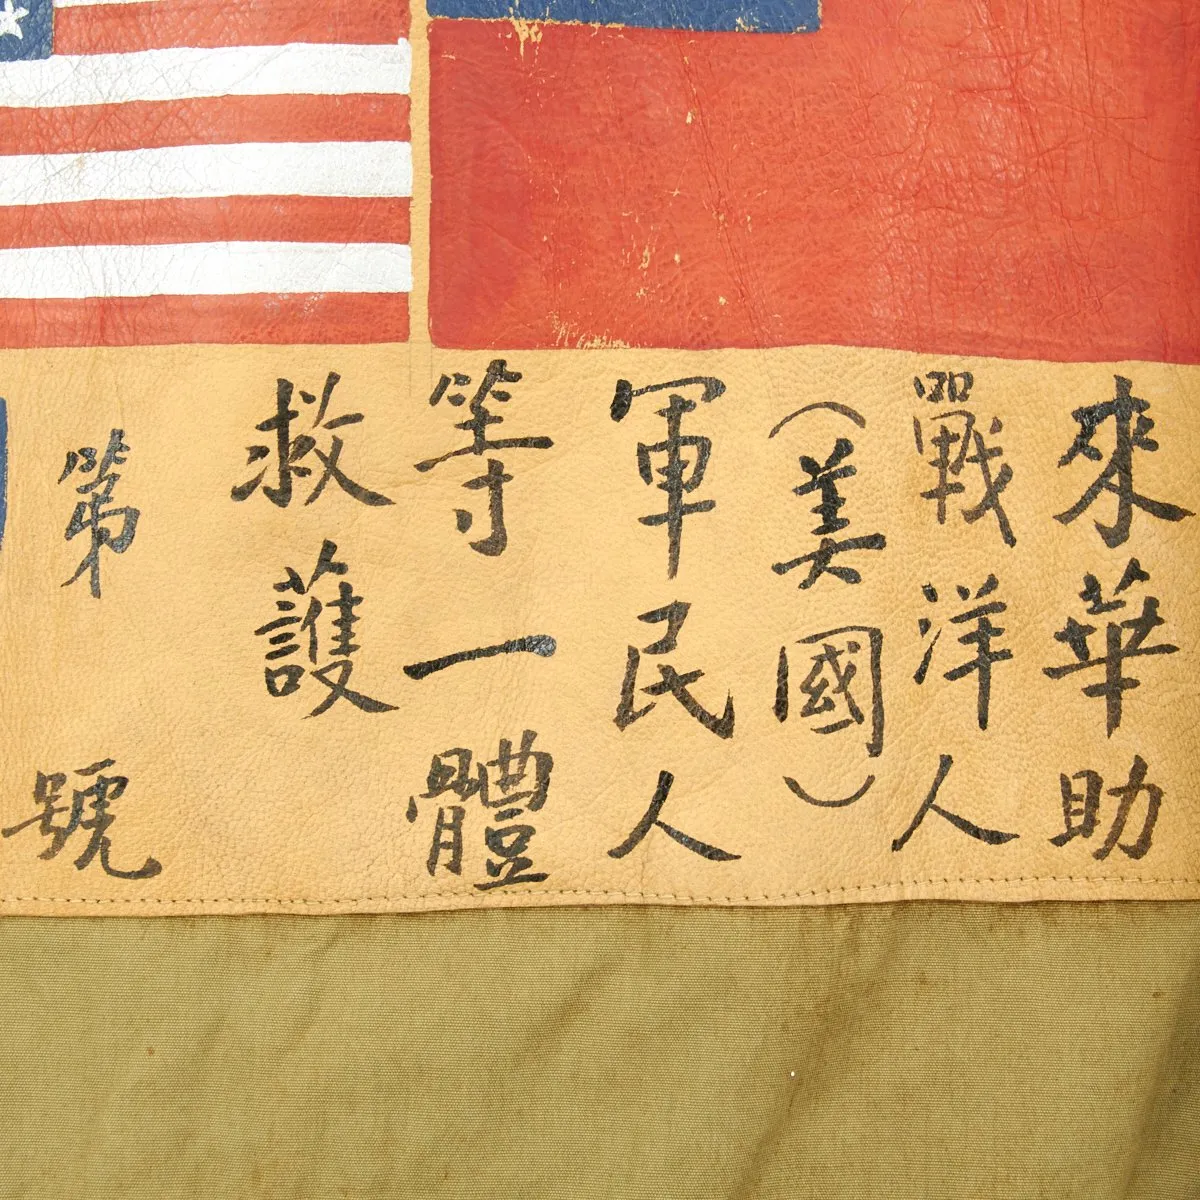 來華助
戰洋人
（美國）
軍民人
等一體
救護
第 號